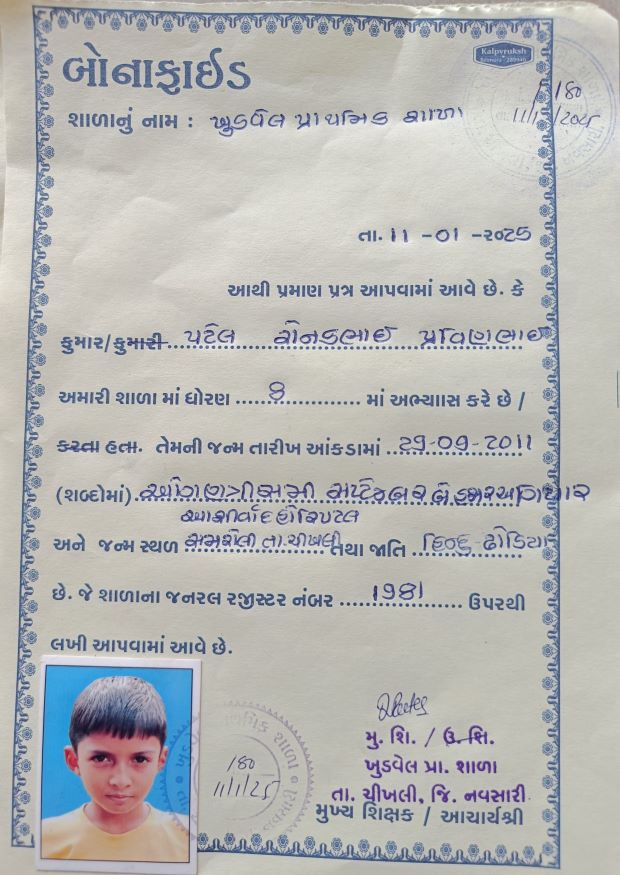 Kalpvruksh
બોનાફાઇડ
180
શાળાનું નામ : ખુડવેલ પ્રાથમિક શાળા
11/1/2025
તા. 11 -01 -૨૦25
આથી પ્રમાણ પત્ર આપવામાં આવે છે. કે
કુમાર/કુમારી પટેલ રોનકભાઈ પ્રવિણભાઈ
અમારી શાળા માં ધોરણ 8 માં અભ્યાસ કરે છે /
કરતા હતા. તેમની જન્મ તારીખ આંકડામાં 29-09-2011
(શબ્દોમાં) ઓગણત્રીસમી સપ્ટેમ્બર બે હજાર અગિયાર
આશીર્વાદ હોસ્પિટલ
અને જન્મ સ્થળ સમરોલી તા.ચીખલી તથા જાતિ હિન્દુ-ઢોડિયા
છે. જે શાળાના જનરલ રજીસ્ટર નંબર 1981 ઉપરથી
લખી આપવામાં આવે છે.
180
11/1/25
મુ. શિ. / ઉ. શિ.
ખુડવેલ પ્રા. શાળા
તા. ચીખલી, જિ. નવસારી
મુખ્ય શિક્ષક / આચાર્યશ્રી